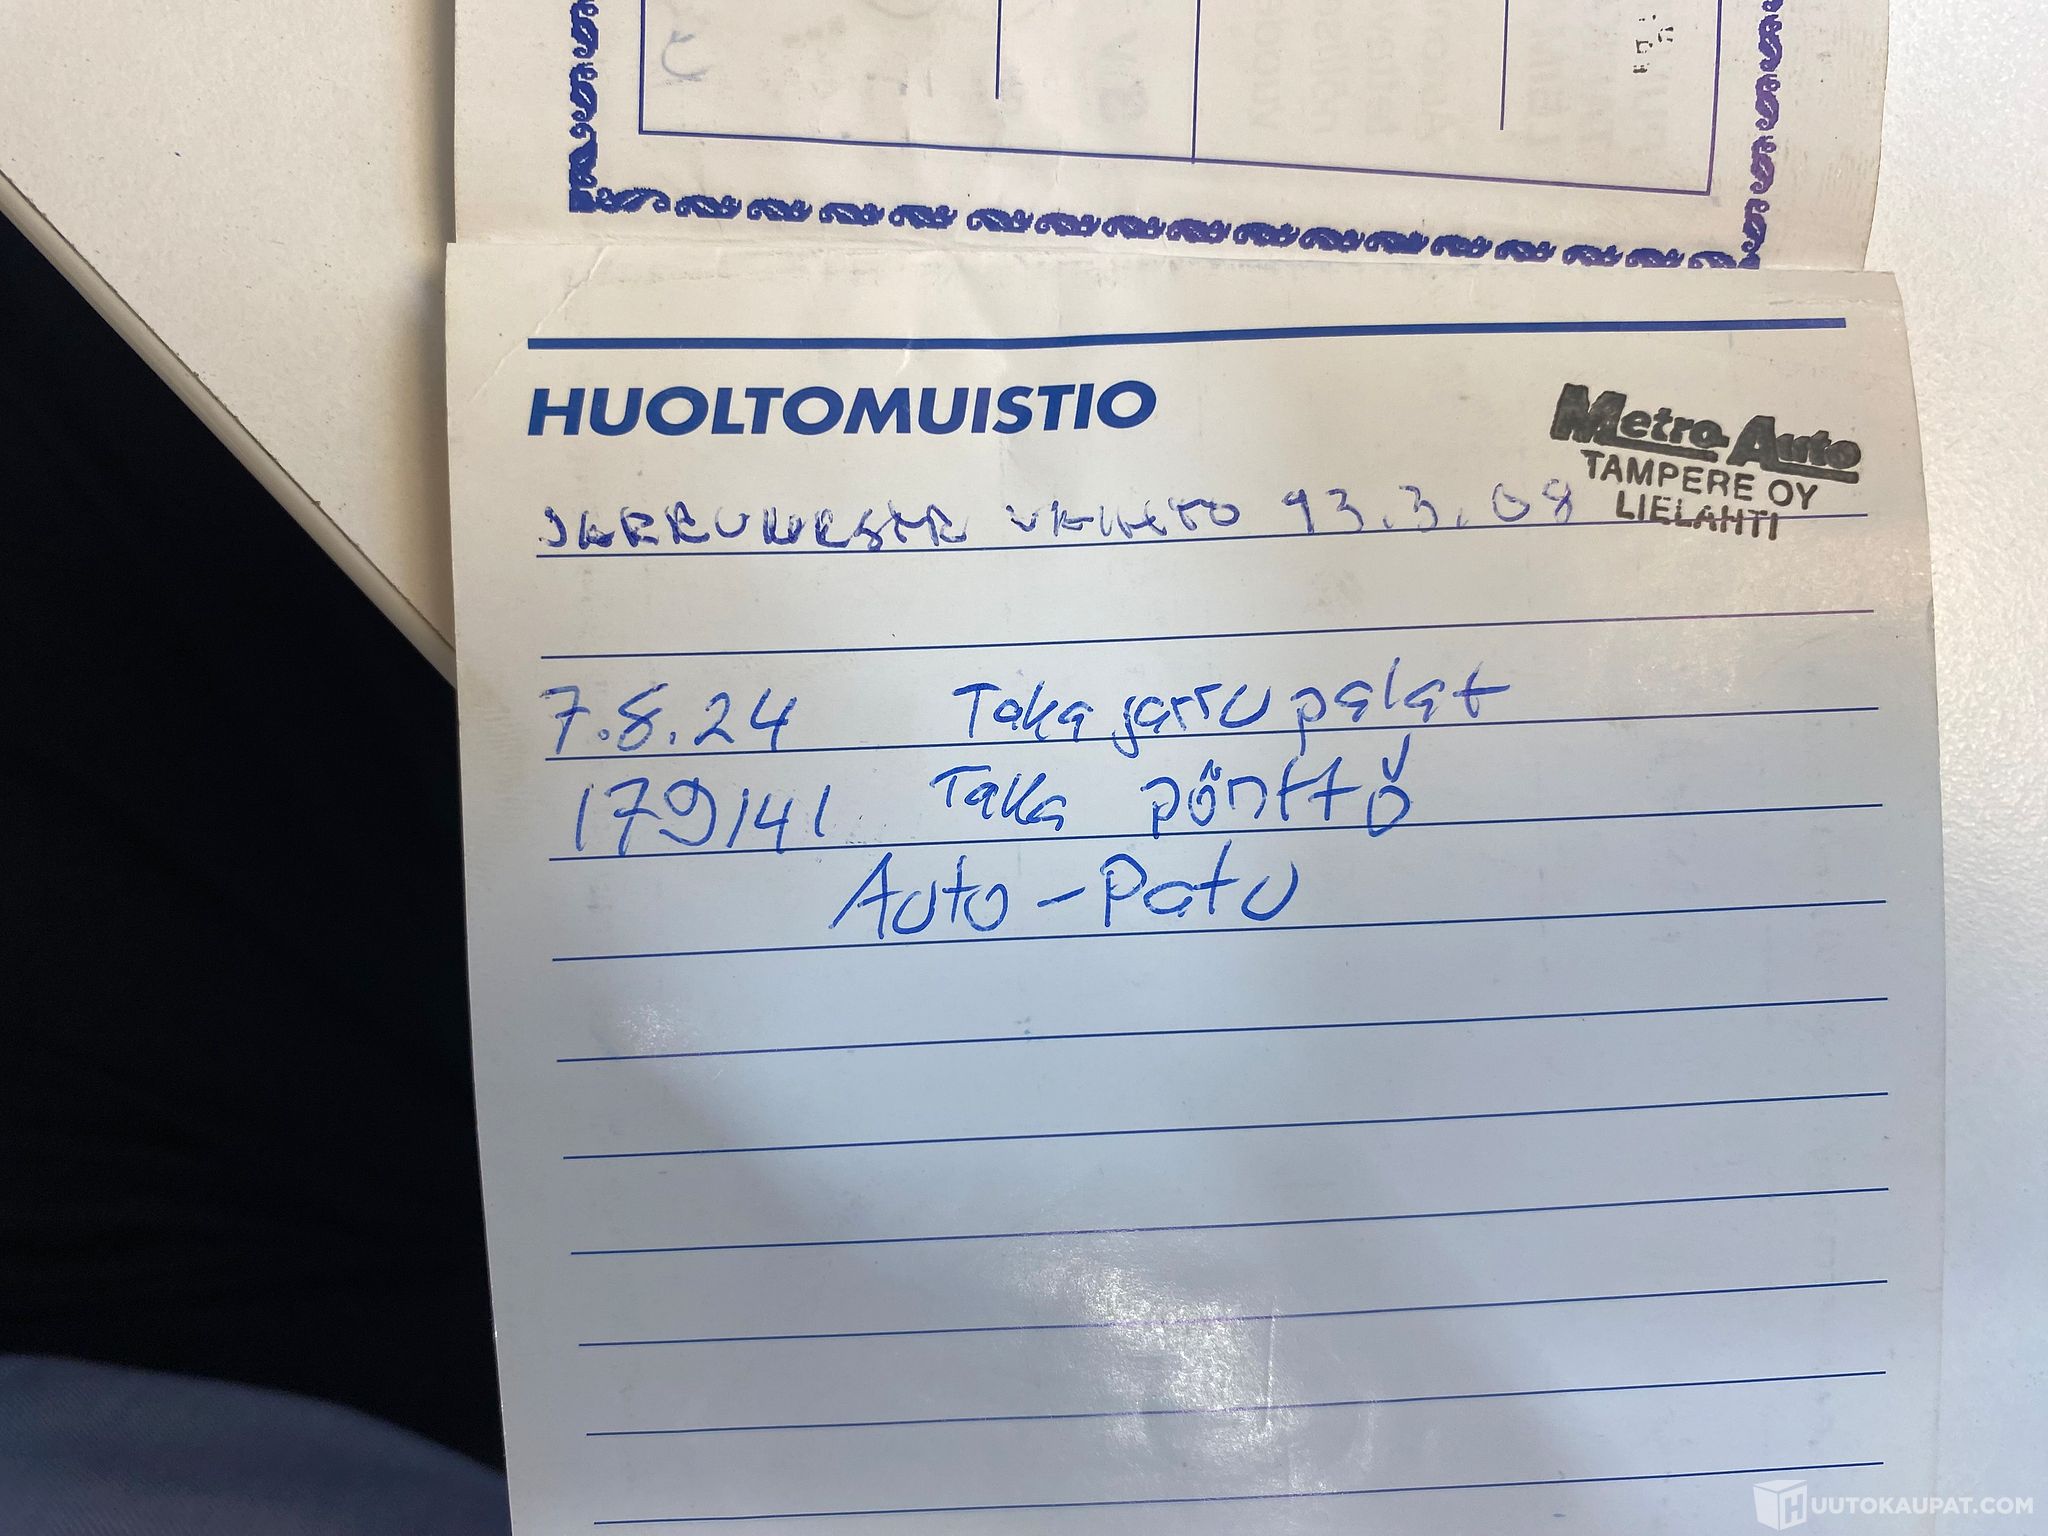 HUOLTOMUISTIO
Metro-Auto
TAMPERE OY
LIELAHTI
JARRUNESTE VAIHTO 13.3.08
7.8.24 Taka jarru palat
179141 Taka pönttö
Auto-Patu
HUUTOKAUPAT.COM